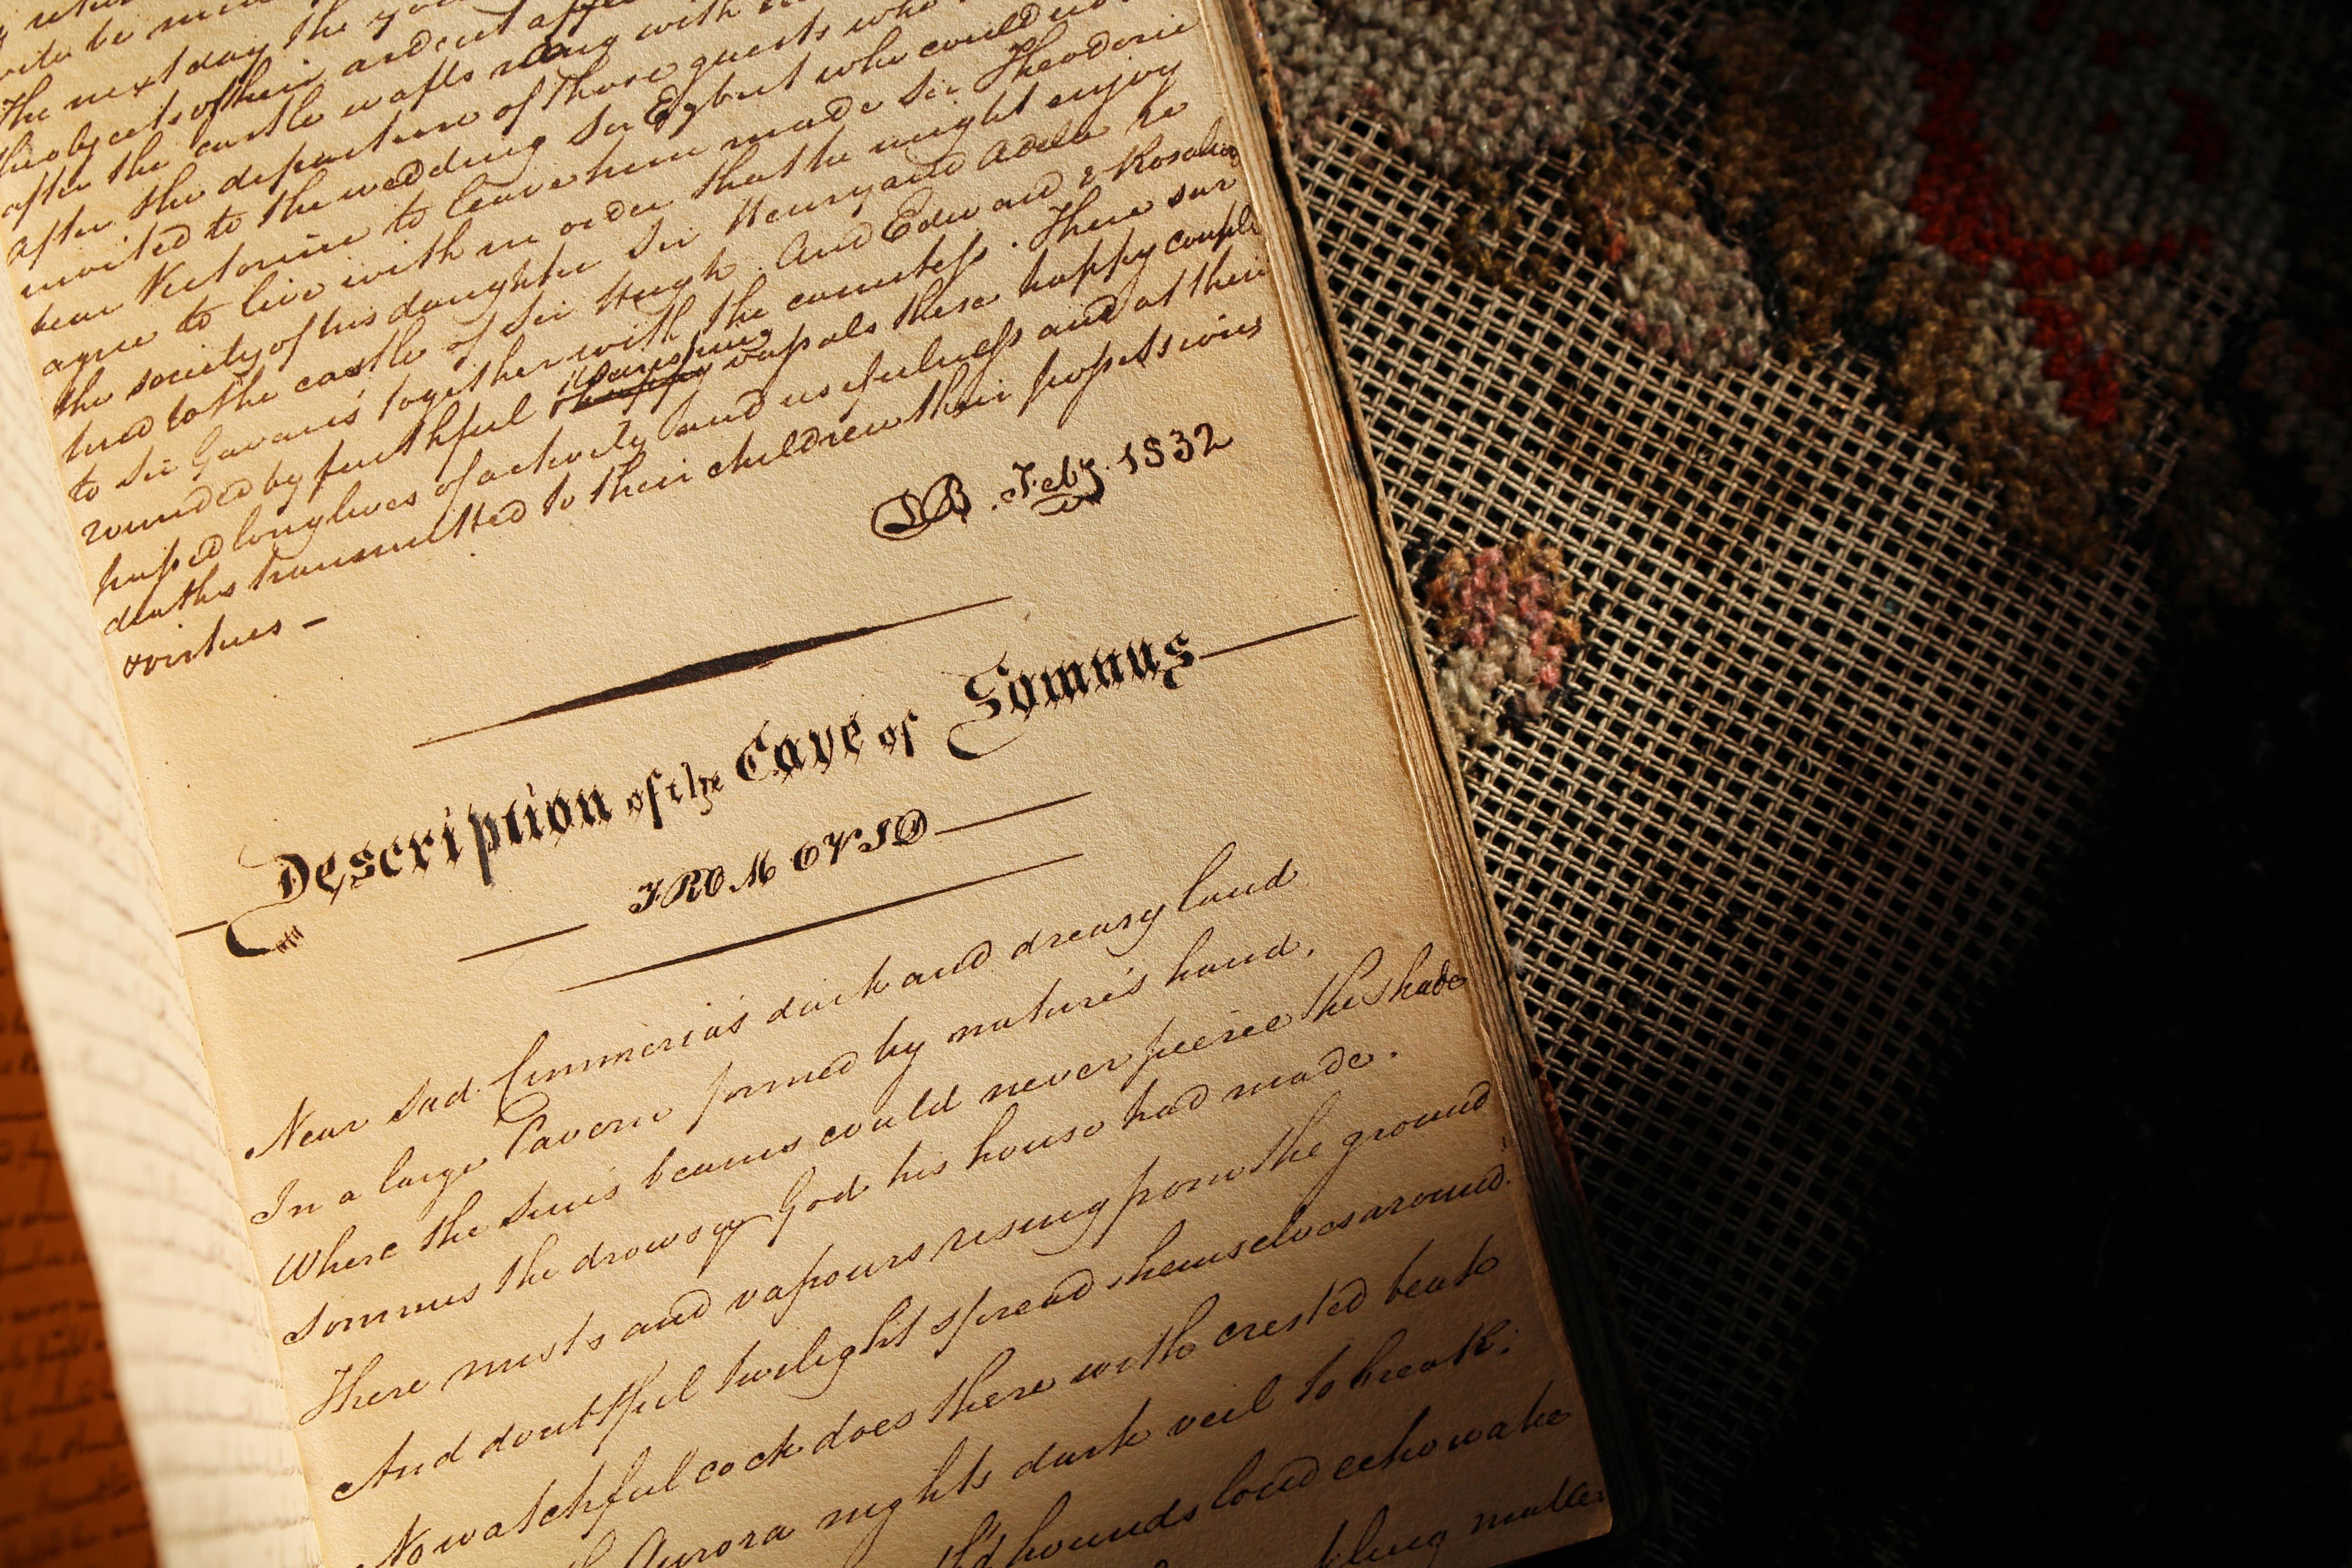 The next day the
the objects of their ardent
after the castle wafts rang with
after the departure of those guests who
invited to the wedding Sir Egbert who could not
bear Victorine to leave him made Sir Theodorie
agree to live with him in order that he might enjoy
the society of his daughter Sir Henry and Adela re
turned to the castle of Sir Hugh. And Edward & Rosalie
to Sir Gavani's together with the countess. There sur
rounded by faithful vassals these happy couple
passed long lives of activity and usefulness and at their
deaths transmitted to their children their possessions
& virtues –
SB. Feby. 1832
Description of the Cave of Somnus
FROM OVID
Near sad Cimmeria's dark and dreary land
In a large Cavern formed by nature's hand,
Where the sun's beams could never pierce the shade
Somnus the drowsy God his house had made.
There mists and vapours rising from the ground
And doubtful twilight spread themselves around.
No watchful cock does there with crested beak
Aurora nights dark veil to break;
hounds loud echo wake